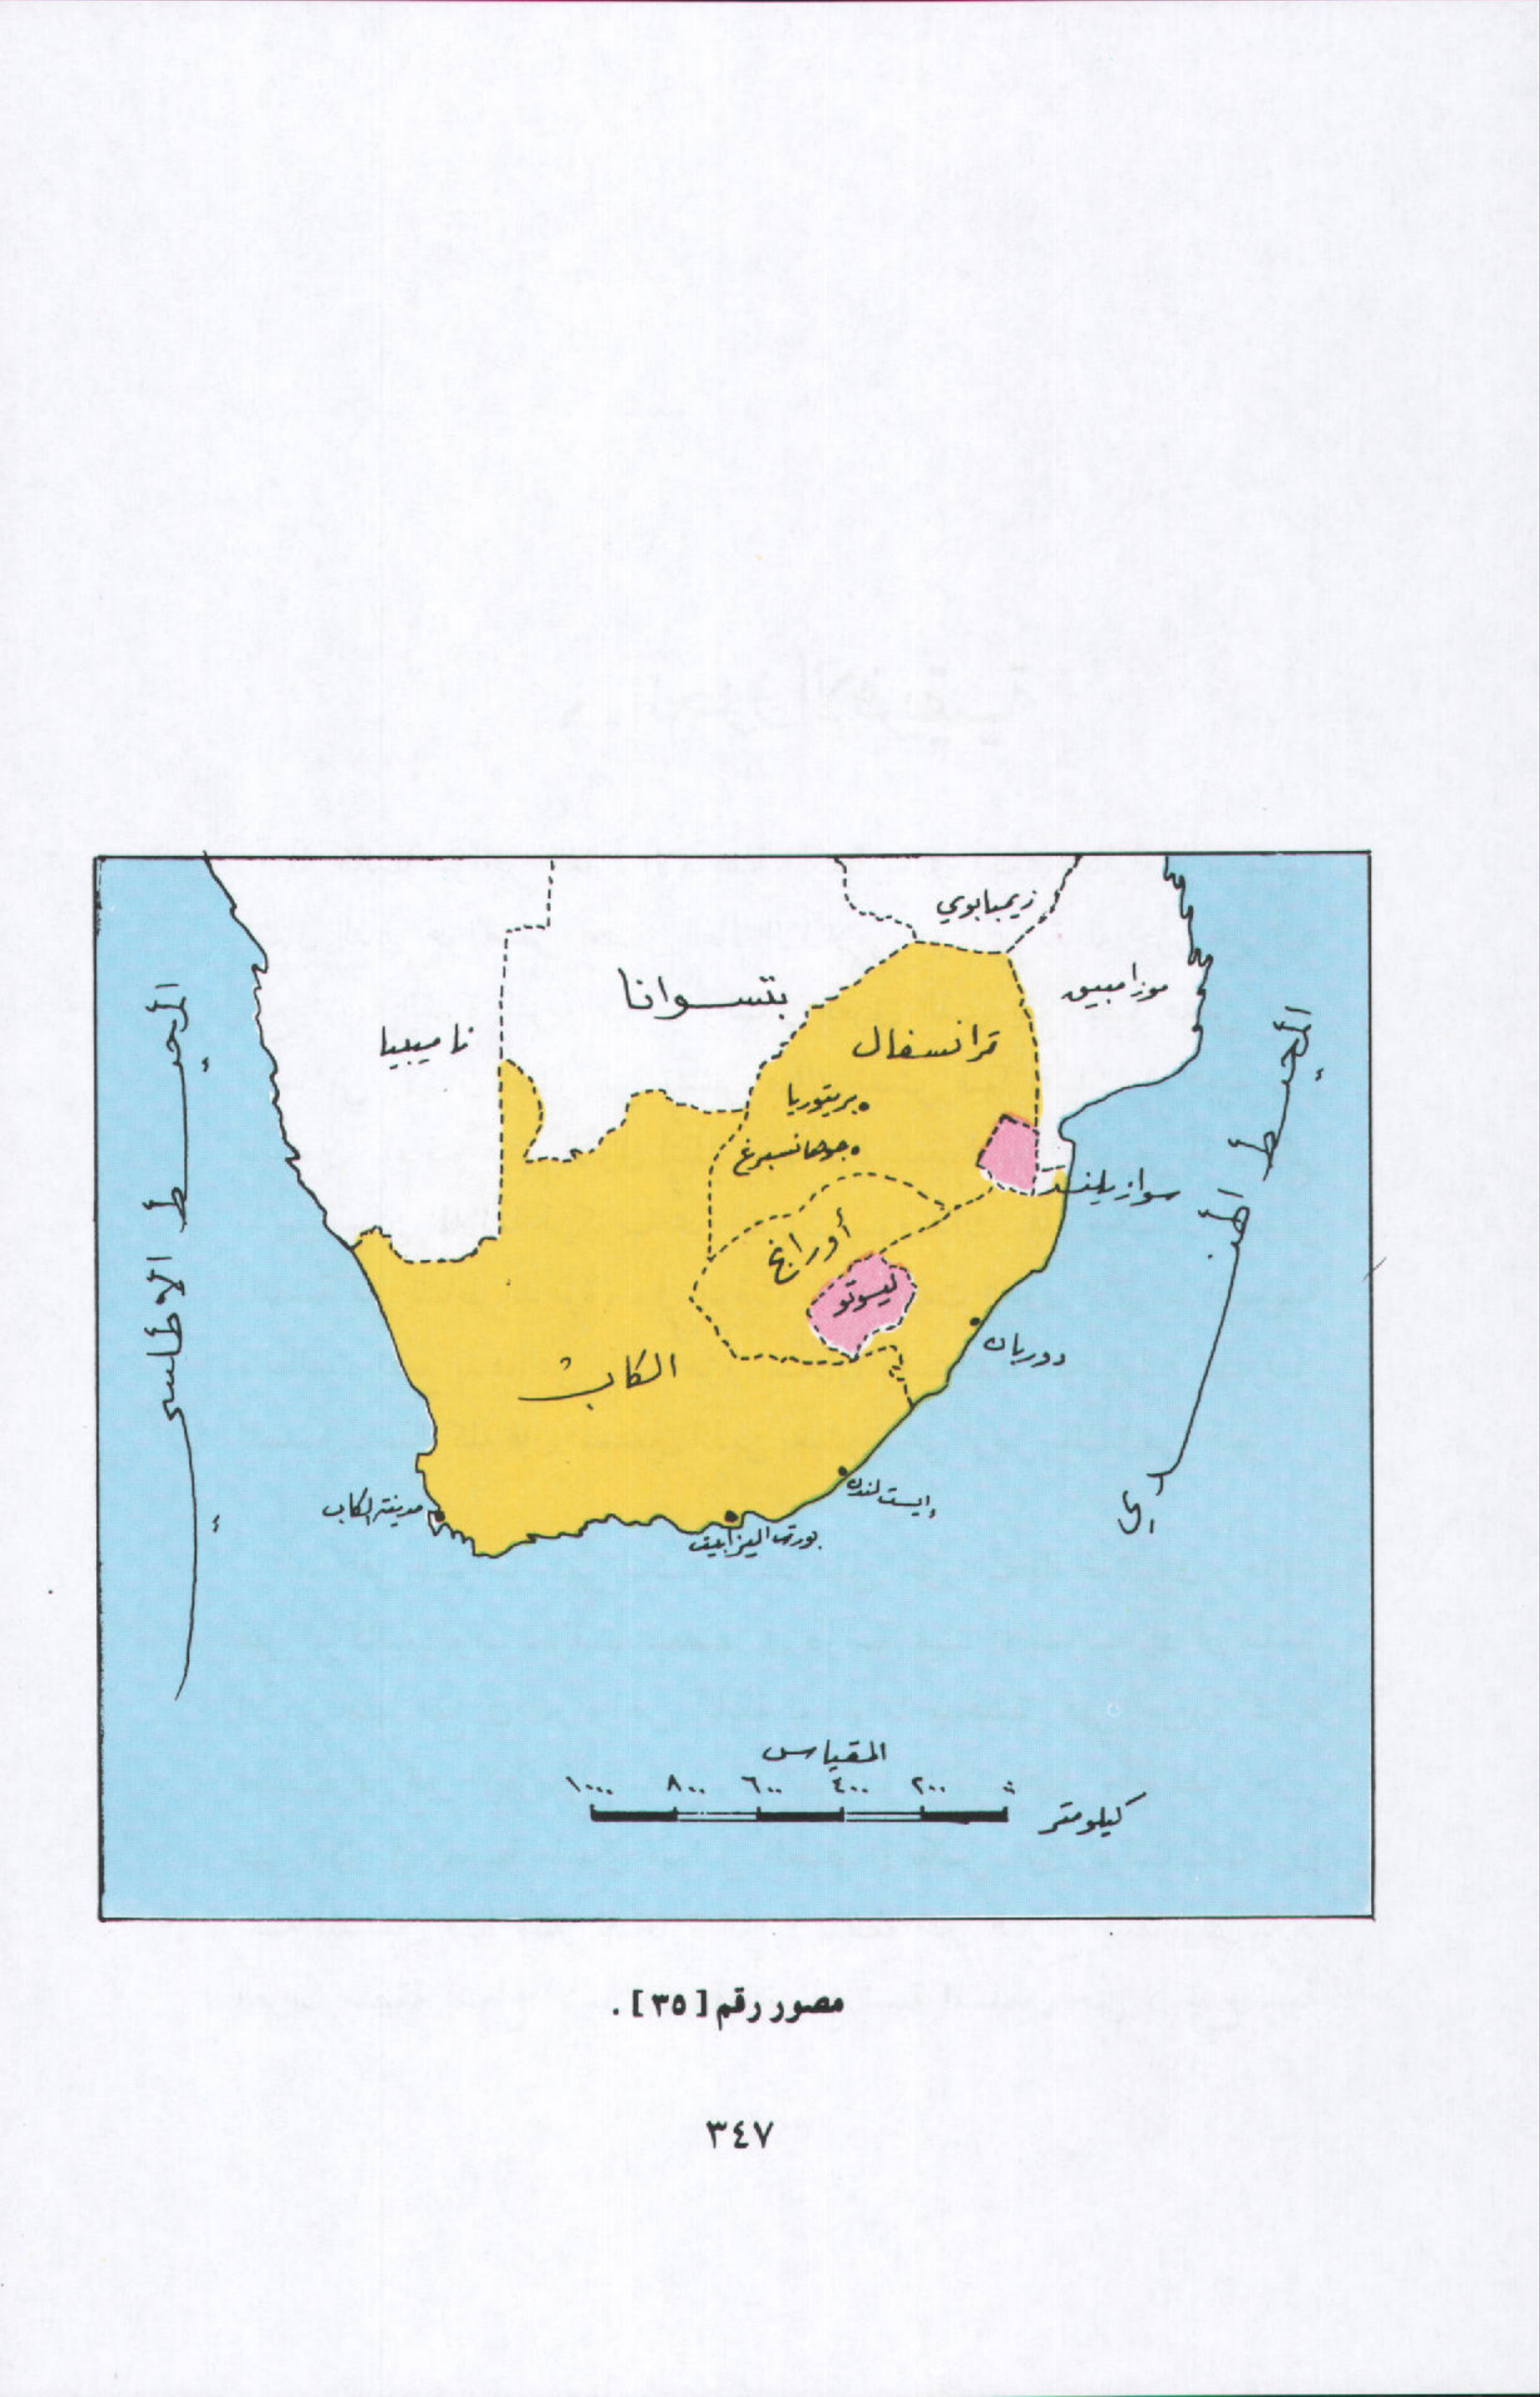 زيمبابوي
موزامبيق
بتسوانا
ناميبيا
ترانسفال
بريتوريا
جوهانسبرغ
سوازيلند
أورانج
ليسوتو
دوربان
الكاب
إيست لندن
مدينة الكاب
بورت اليزابيت
المحيط الاطلسي
المحيط الهندي
المقياس
١٠٠٠ ٨٠٠ ٦٠٠ ٤٠٠ ٢٠٠ ٠
كيلومتر
مصور رقم [٣٥] .
٣٤٧